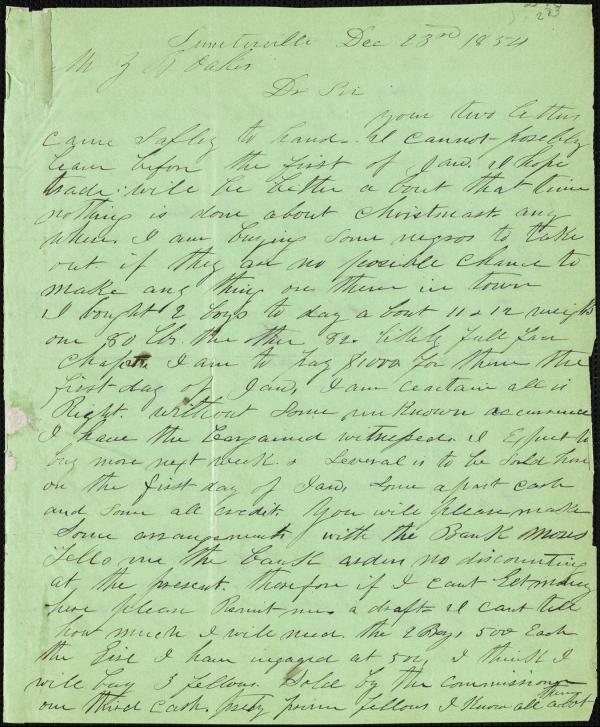 223
Sumterville Dec 23rd 1854
M Z B Oakes
Dr Sir
your two letters
came Safley to hand. I cannot possibly
leave before the first of Jan. I hope
trade will be better a bout that time
nothing is done about Christmast any
where. I am buying some negros to take
out if they are no possible chance to
make any thing on them in town
I bought 2 boys to day a bout 11 & 12 weighs
one 80 lbs. the other 82. likely full face
Chaps I am to pay $1000 for them the
first day of Jan, I am ceartain all is
Right. without some unknown accurrence
I have the bargained witnessed. I Expect to
buy more next week. & Several is to be Sold here
on the first day of Jan, some apart cash
and some all credit. You will please make
Some arrangements with the Bank Moses
Tells me the bank arders no discounting
at the present. therefore if I cant Get money
here please Remit me a draft. I cant tell
how much I will need. the 2 Boys 500 Each
the Girl I have ingaged at 500, I think I
will buy 3 fellows. Sold by the commissioner
one third cash. pretty prime fellows I Know all about them